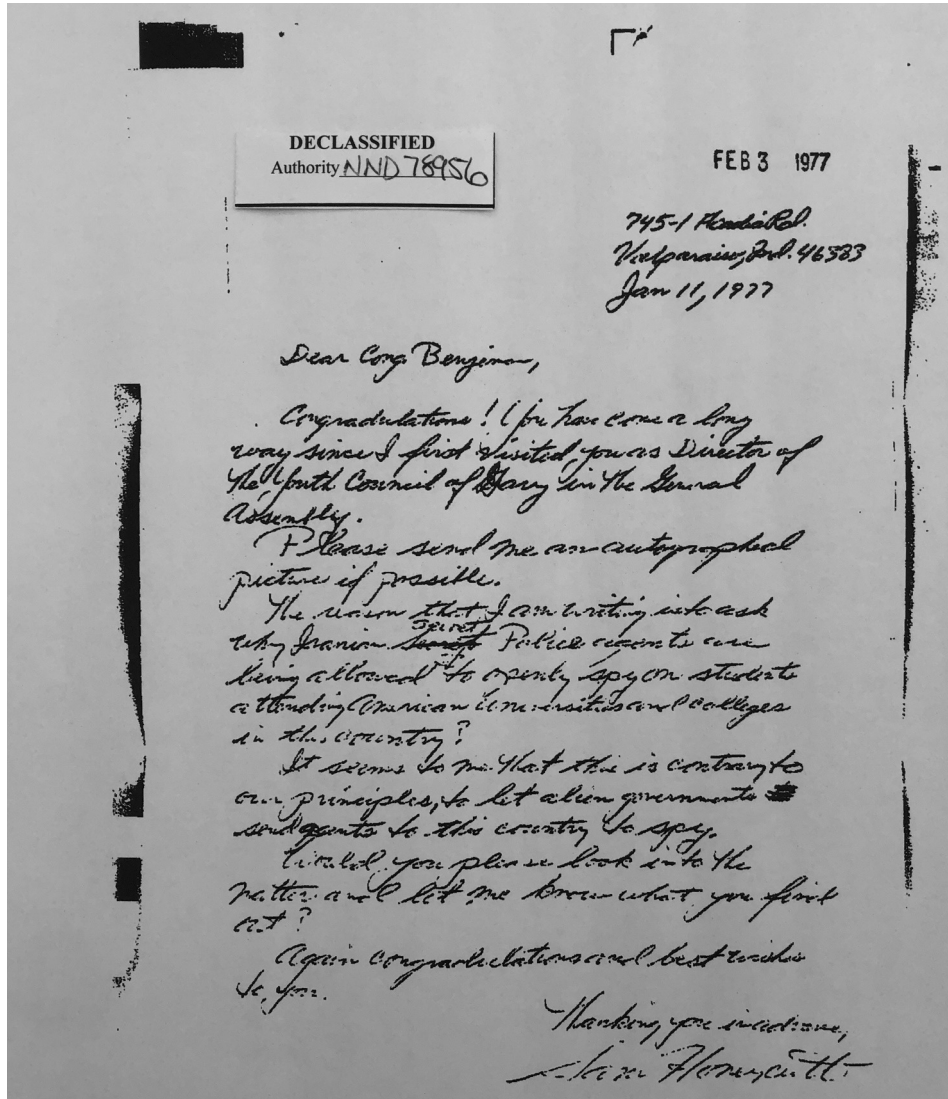 DECLASSIFIED
Authority NND 78956
FEB 3 1977
745-1 Rd.
Valparaiso, Ind. 46383
Jan 11, 1977
Dear Cong Benjimon,
Congradulations! You have come a long
way since I first visited you as Director of
the Youth Council of Gary in the General
Assembly.
Please send me an autographed
picture if possible.
The reason that I am writing is to ask
why Iranian secret Police agents are
being allowed to openly spy on students
attending American Universities and colleges
in this country?
It seems to me that this is contrary to
our principles, to let alien governments
send agents to this country to spy.
Would you please look into the
matter and let me know what you find
out?
Again congradulations and best wishes
to you.
Thanking you in advance,
Honeycutt